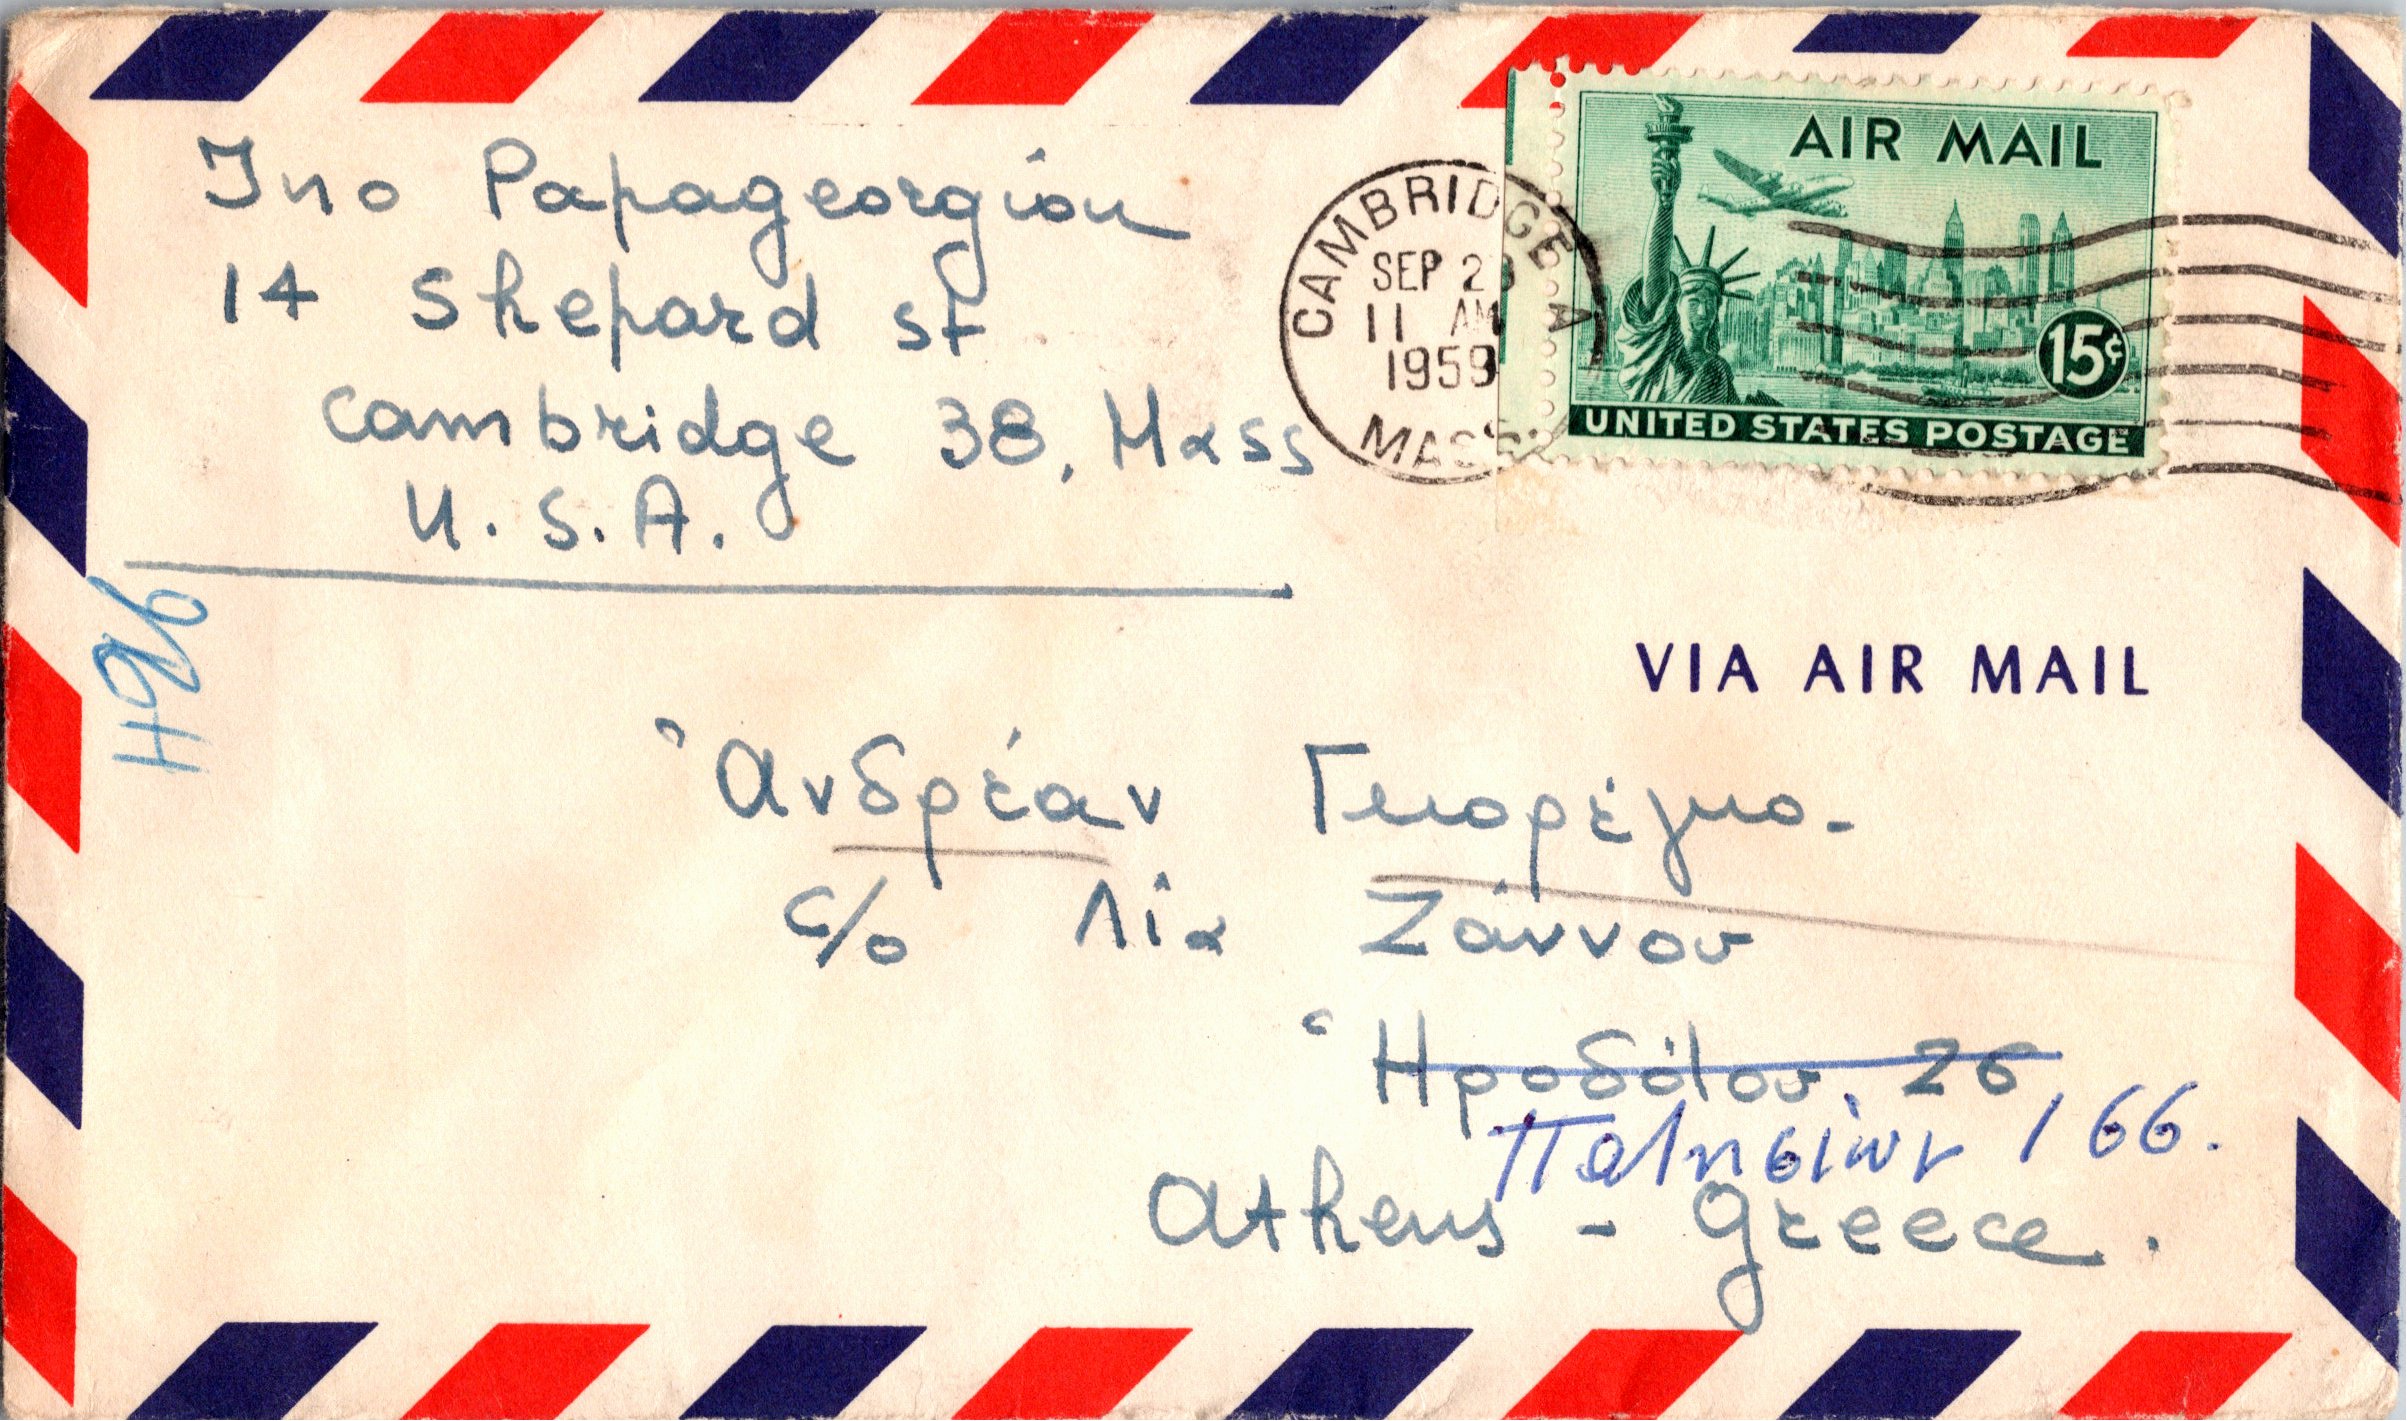 Ino Papageorgiou
14 Shepard st
Cambridge 38, Mass
U.S.A.
CAMBRIDGE A
SEP 29
11 AM
1959
MASS
AIR MAIL
15¢
UNITED STATES POSTAGE
VIA AIR MAIL
Ἀνδρέαν
c/o Λία Ζάννου
Ἡροδότου, 26
Πατησίων 166.
Athens - Greece.